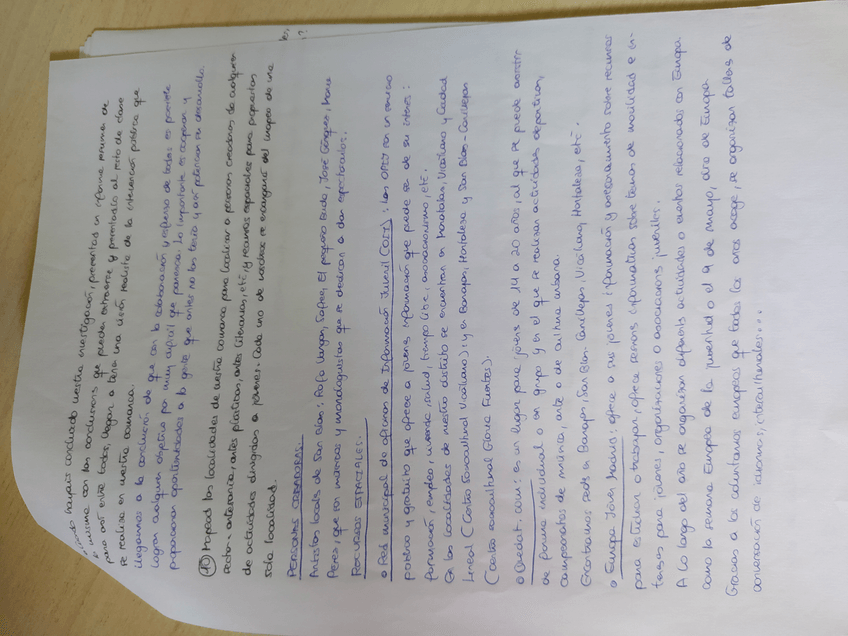 hayáis concluido vuestra investigación, presentad un informe resumen de
la misma con las conclusiones que puedan extraerse y presentadlo al resto de clase
para así entre todos, llegar a tener una visión realista de la intervención pública que
se realiza en vuestra comarca.
Llegamos a la conclusión de que con la colaboración y esfuerzo de todos es posible
lograr cualquier objetivo por muy difícil que parezca. Lo importante es cooperar y
proporcionar oportunidades a la gente que antes no las tenía y así potenciar su desarrollo.
10 Mapead las localidades de vuestra comarca para localizar a personas creadoras de cualquier
sector: artesanía, artes plásticas, artes literarias, etc. y recursos espaciales para proyectos
de actividades dirigidas a jóvenes. Cada uno de vosotros se encargará del mapeo de una
sola localidad.
PERSONAS CREADORAS:
Artistas locales de San Blas: Rafa Vargas, El pequeño José
Pérez, que son músicos y monologuistas que se dedican a dar espectáculos.
RECURSOS ESPACIALES:
• Red municipal de oficinas de Información Juvenil (OIJ): las OMIJ son un servicio
público y gratuito que ofrece a jóvenes información que puede ser de su interés:
formación, empleo, vivienda, salud, tiempo libre, asociacionismo, etc.
En las localidades de nuestro distrito se encuentran en Hortaleza, Vicálvaro y Ciudad
Lineal (Centro Sociocultural Vicálvaro); y en Barajas, Hortaleza y San Blas-Canillejas
(Centro sociocultural Gloria Fuertes).
• Quedat.com: es un lugar para jóvenes de 14 a 20 años, al que se puede asistir
de forma individual o en grupo y en el que se realizan actividades deportivas,
campeonatos de música, arte o de cultura urbana.
Encontramos sede en Barajas, San Blas-Canillejas, Vicálvaro, Hortaleza, etc.
• Europa Joven Madrid: ofrece a sus jóvenes información y asesoramiento sobre recursos
para estudiar o trabajar, ofrece sesiones informativas sobre temas de movilidad e in-
tereses para jóvenes, organizaciones o asociaciones juveniles.
A lo largo del año se organizan diferentes actividades o eventos relacionados con Europa
como la semana Europea de la juventud o el 9 de mayo, día de Europa.
Gracias a los voluntarios europeos que todos los años acoge, se organizan talleres de
conversación de idiomas, interculturales...